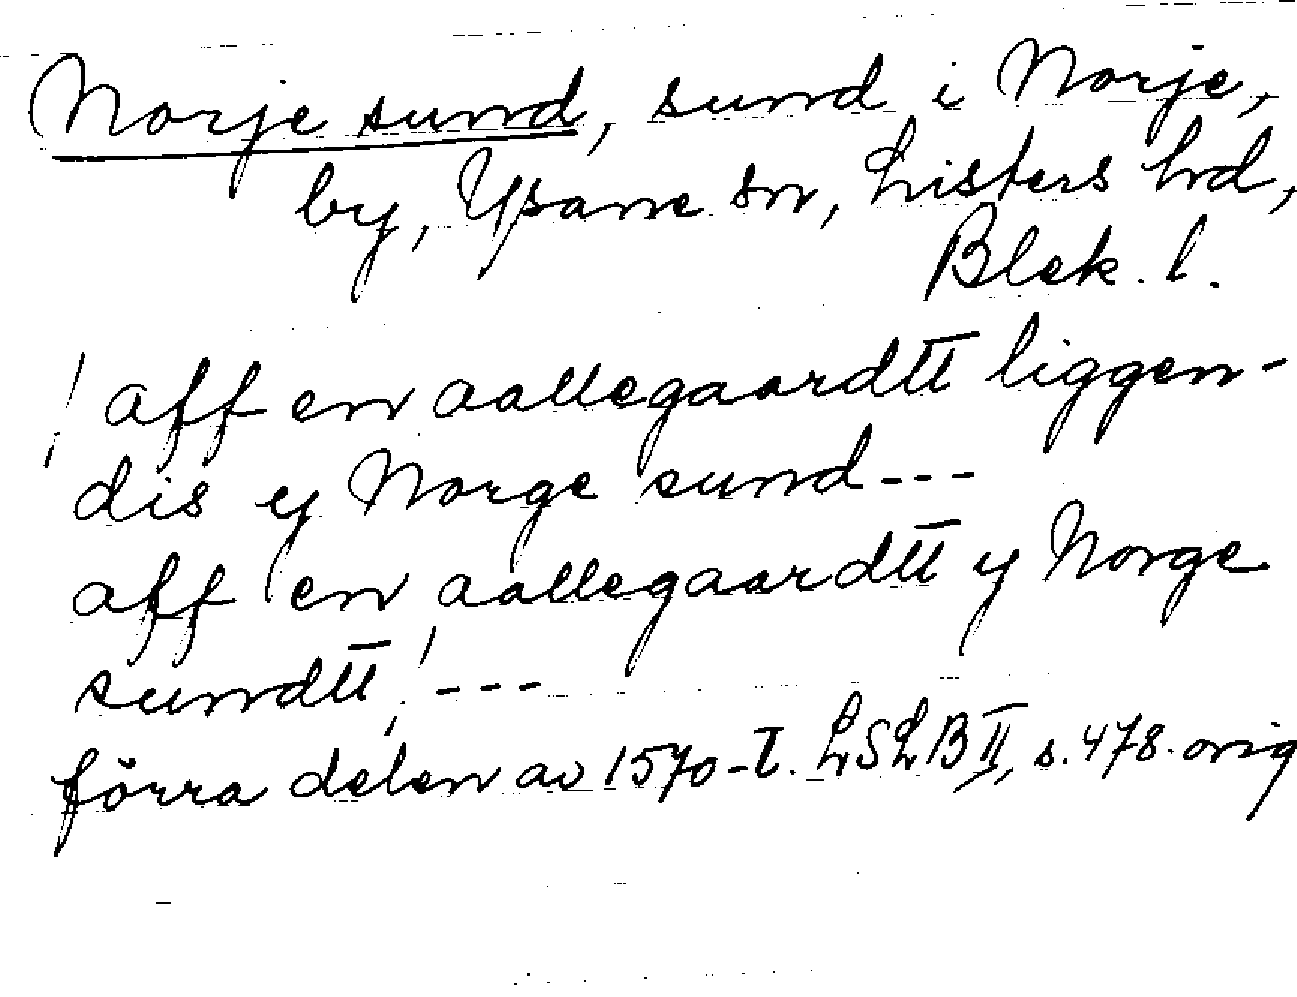 Norje sund, sund i Norje,
by, Ysane sn, Listers hd,
Blek. l.
! aff en aallegaardtt liggen-
dis y Norge sund---
aff en aallegaardtt y Norge
sundtt! ---
förra delen av 1570-t. LSLB II, s. 478. orig